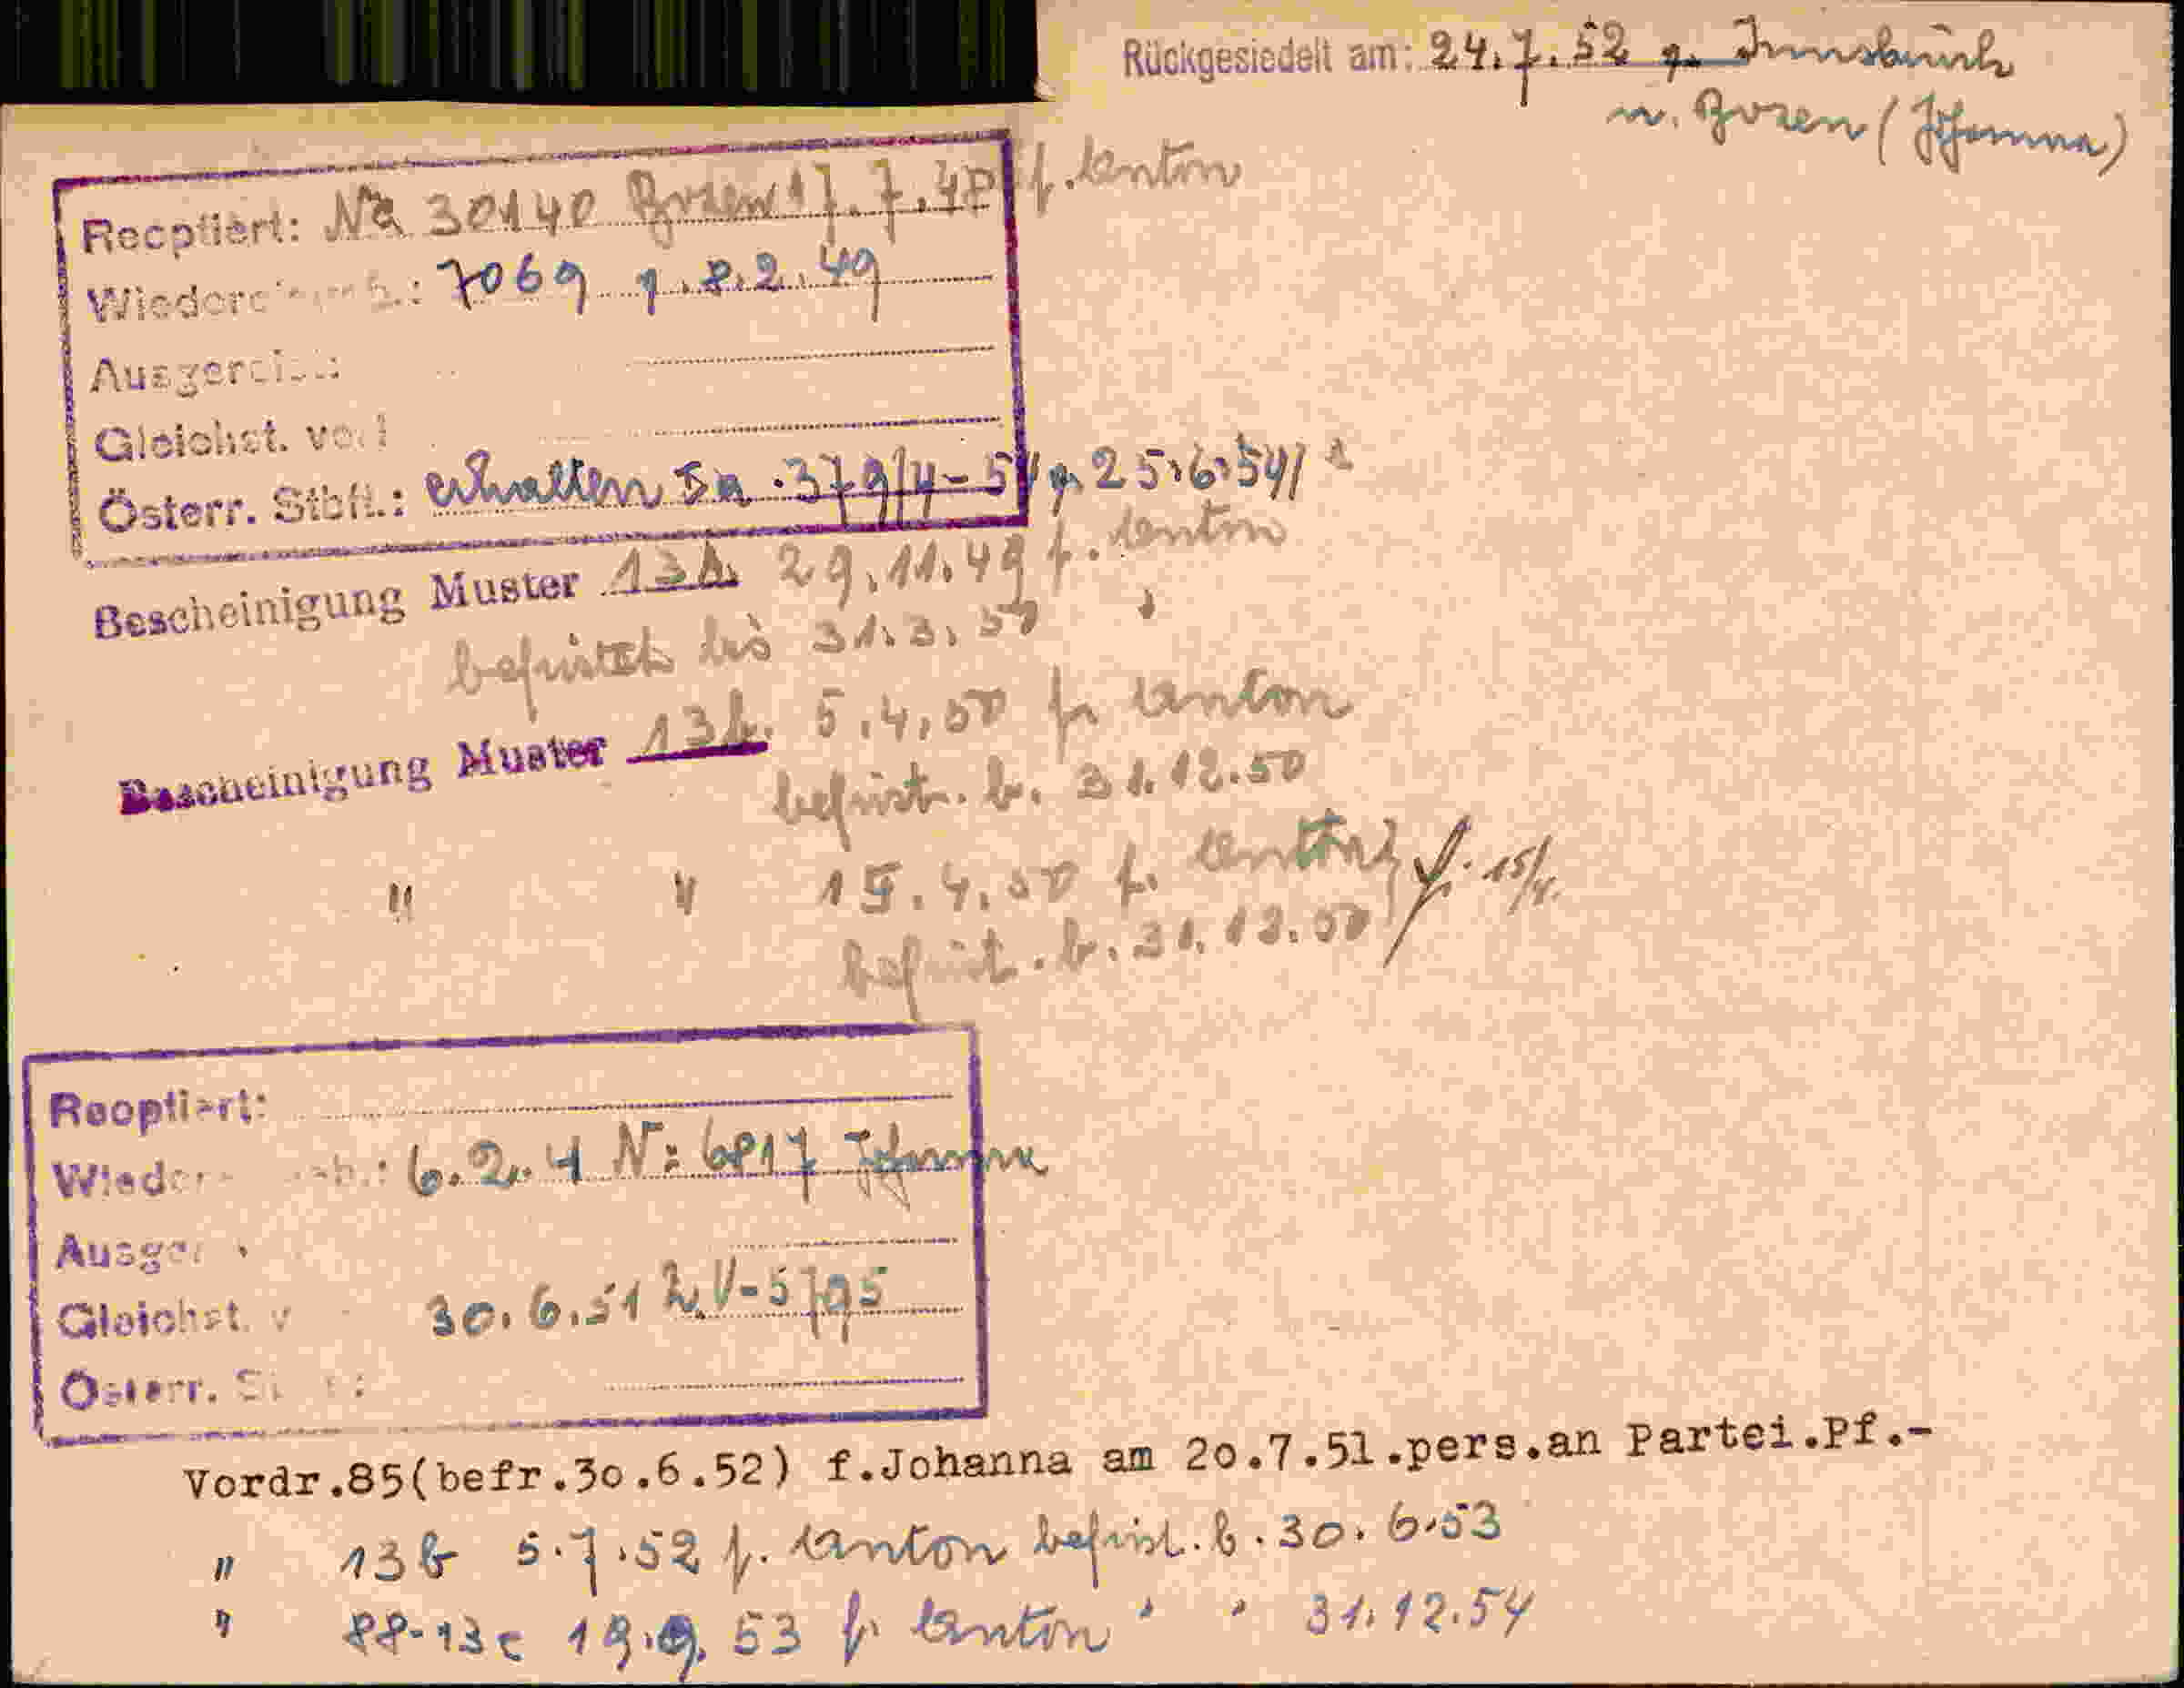 Rückgesiedelt am: 24.7.52 v. Innsbruck
n. Bozen (Johanna)
Reoptiert: Na 30140 Bozen 17.7.48 f. Anton
Wieder : 7069 v. 8.2.49
Ausgereist:
Gleichst. vo
Österr. Stbft.: erhalten Ia 379/4-54 v. 25.6.54/
Bescheinigung Muster 13A. 29.11.49 f. Anton
befristet bis 31.3.50 "
Bescheinigung Muster 13b. 5.4.50 f. Anton
befrist. b. 31.12.50
" " 15.4.50 f. Anton 15/4.
befrist. b. 31.12.50
Reoptiert:
Wieder : 6.2.4 N: 6817 Johanna
Ausger
Gleichst. v 30.6.51 Z.V-5795
Österr. St :
Vordr.85(befr.30.6.52) f.Johanna am 20.7.51.pers.an Partei.Pf.-
" 13b 5.7.52 f. Anton befrist. b. 30.6.53
" 88-13c 19.9.53 f. Anton " " 31.12.54